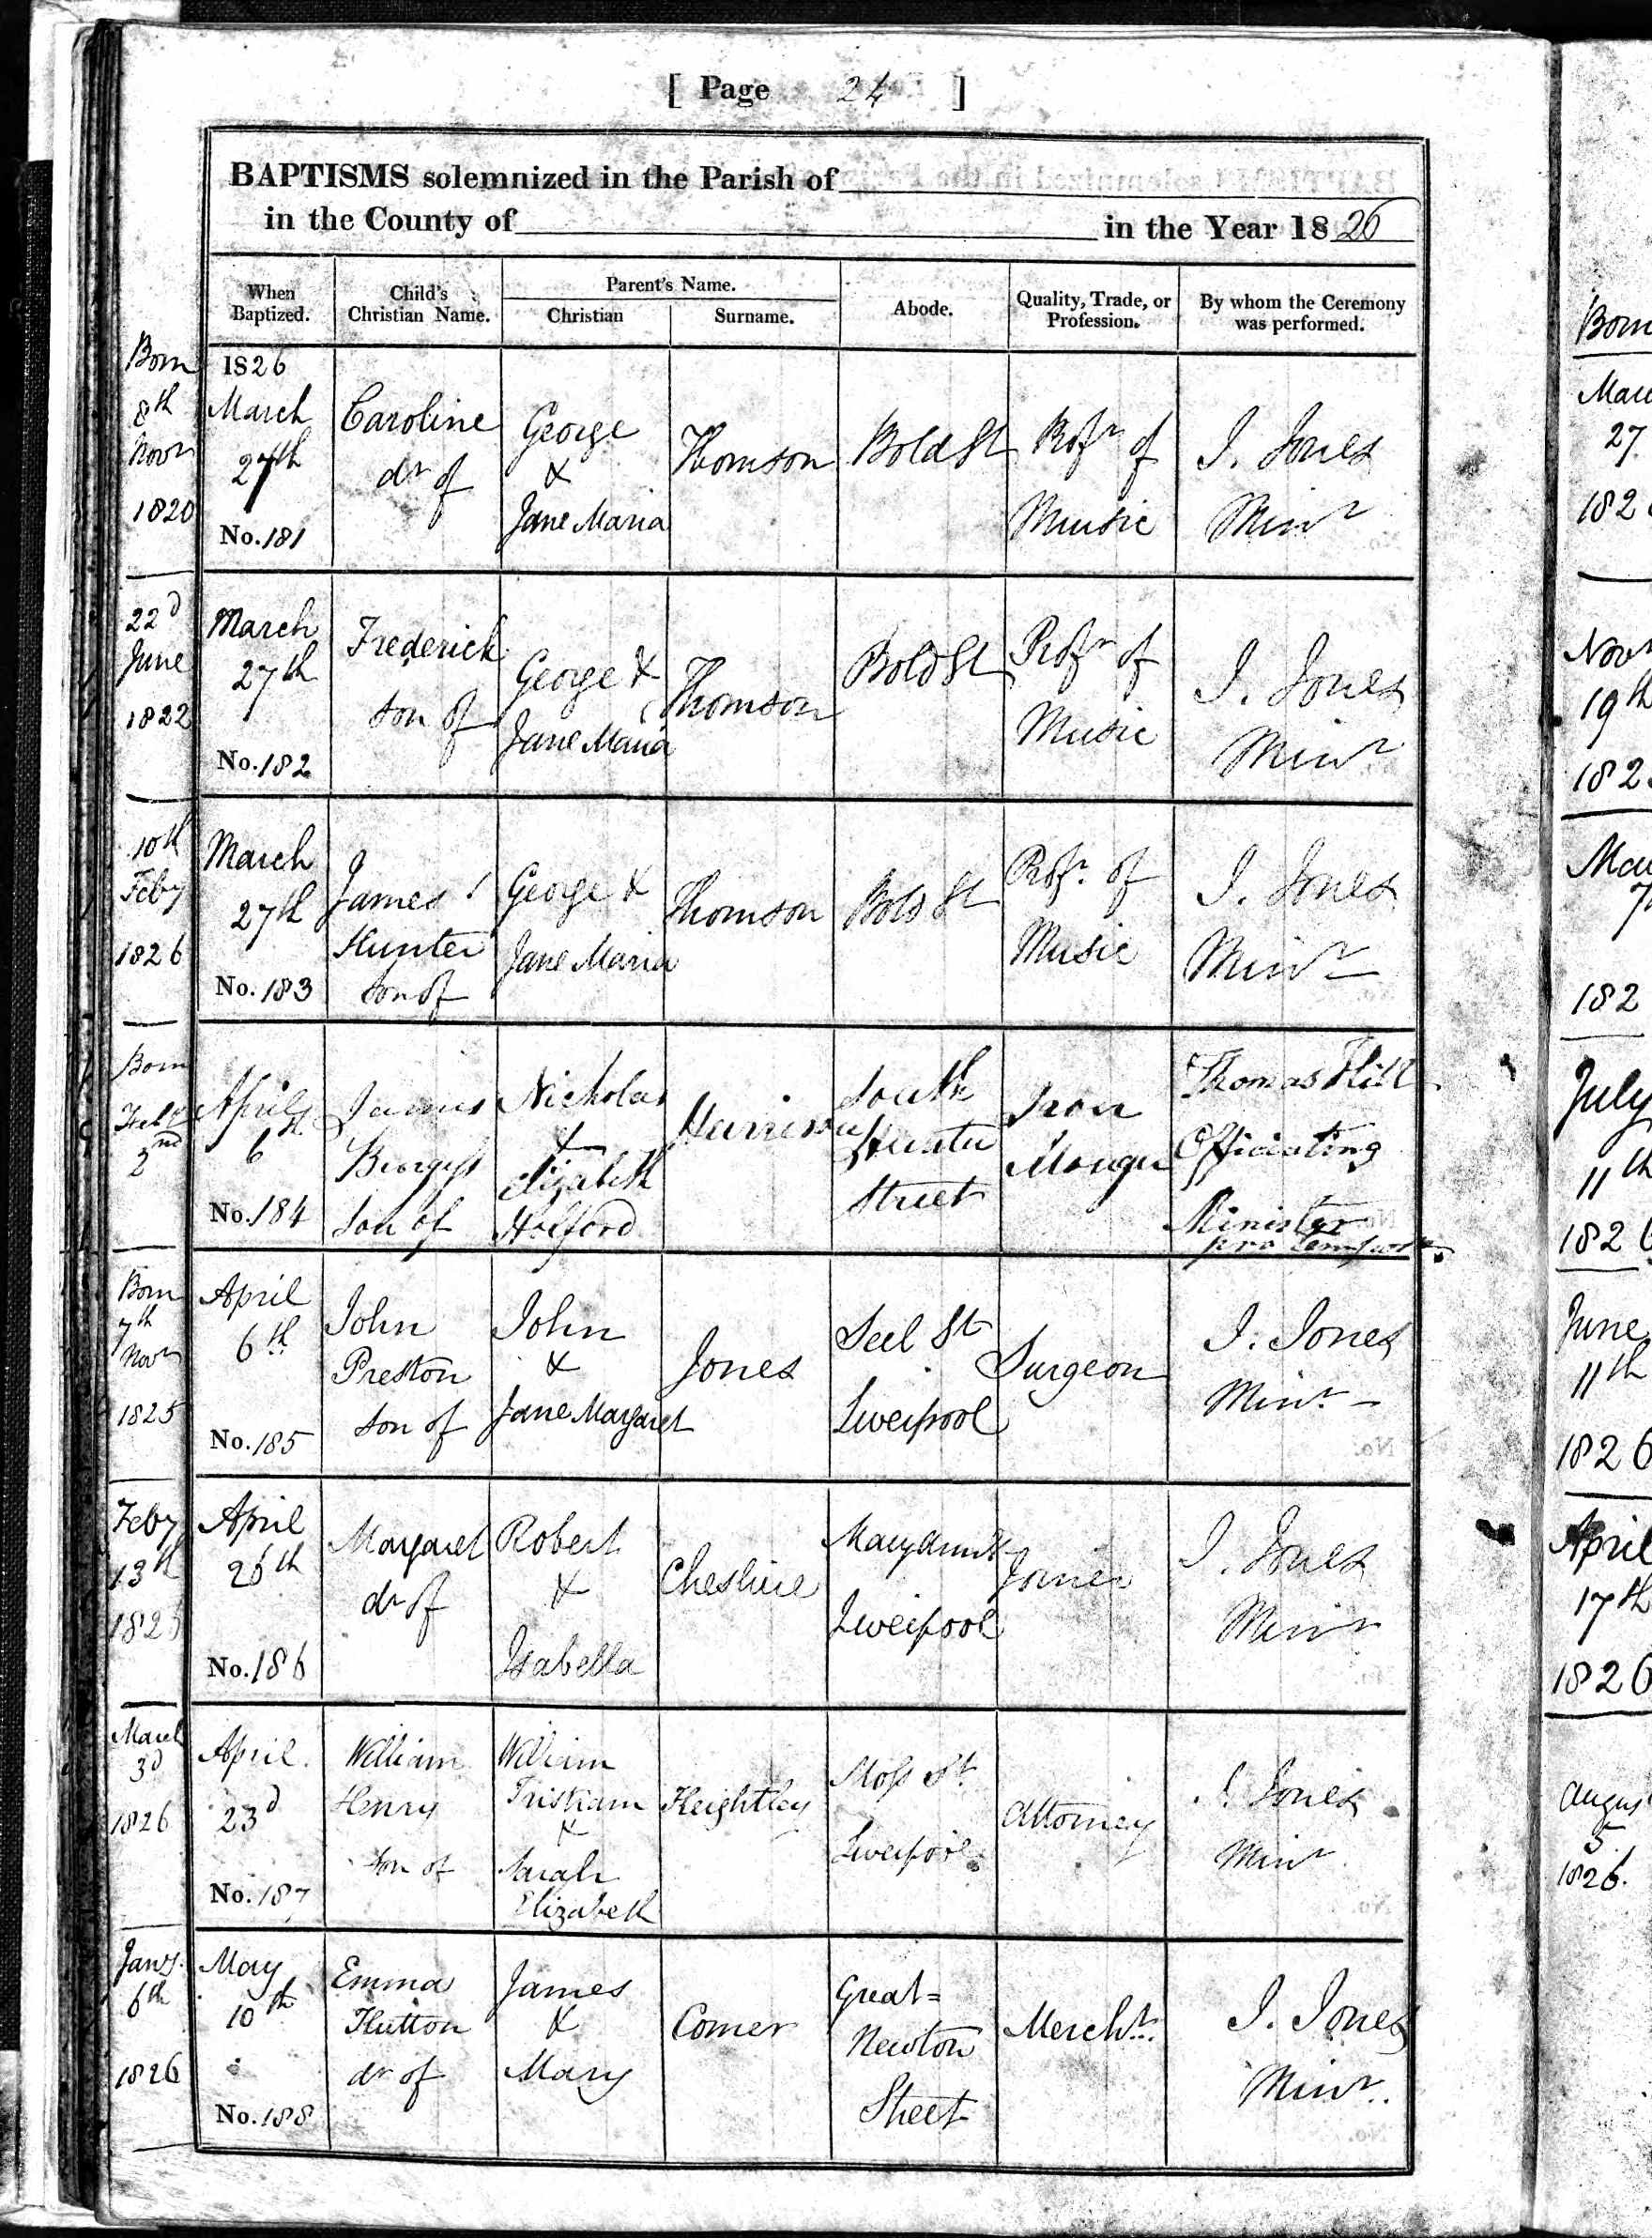 [ Page 24 ]
BAPTISMS solemnized in the Parish of
in the County of in the Year 18 26
When Baptized.
Child's Christian Name.
Parent's Name.
Christian
Surname.
Abode.
Quality, Trade, or Profession.
By whom the Ceremony was performed.
Born
8th
Novr
1820
1826
March
27th
No. 181
Caroline
dr of
George
&
Jane Maria
Thomson
Bold St
Profr of
Music
J. Jones
Minr
22d
June
1822
March
27th
No. 182
Frederick
son of
George &
Jane Maria
Thomson
Bold St
Profr of
Music
J. Jones
Minr
10th
Feby
1826
March
27th
No. 183
James
Hunter
son of
George &
Jane Maria
Thomson
Bold St
Profr. of
Music
J. Jones
Minr
Born
2nd
April
6th
No. 184
James
Burgess
Son of
Nicholas
&
Elizabeth
Holford
Harrison
South
Hunter
Street
Iron
Monger
Officiating
Minister
pro tempore
Born
7th
Novr
1825
April
6th
No. 185
John
Preston
son of
John
&
Jane Margaret
Jones
Seel St
Liverpool
Surgeon
J. Jones
Minr.
Feby
13th
April
No. 186
Margaret
dr of
Robert
&
Isabella
Cheshire
Liverpool
Joiner
J. Jones
Minr
March
3d
1826
April
23d
No. 187
William
Henry
son of
William
Tristram
&
Sarah
Elizabeth
Keightley
Moss St
Liverpool
Attorney
J. Jones
Minr
Jany.
6th
1826
May
10th
No. 188
Emma
Hutton
dr of
James
&
Mary
Comer
Great=
Newton
Street
Mercht.
J. Jones
Minr.
Born
27.
182
Novr
19th
182
182
July
11th
1826
June
11th
1826
April
17th
1826
5
1826.